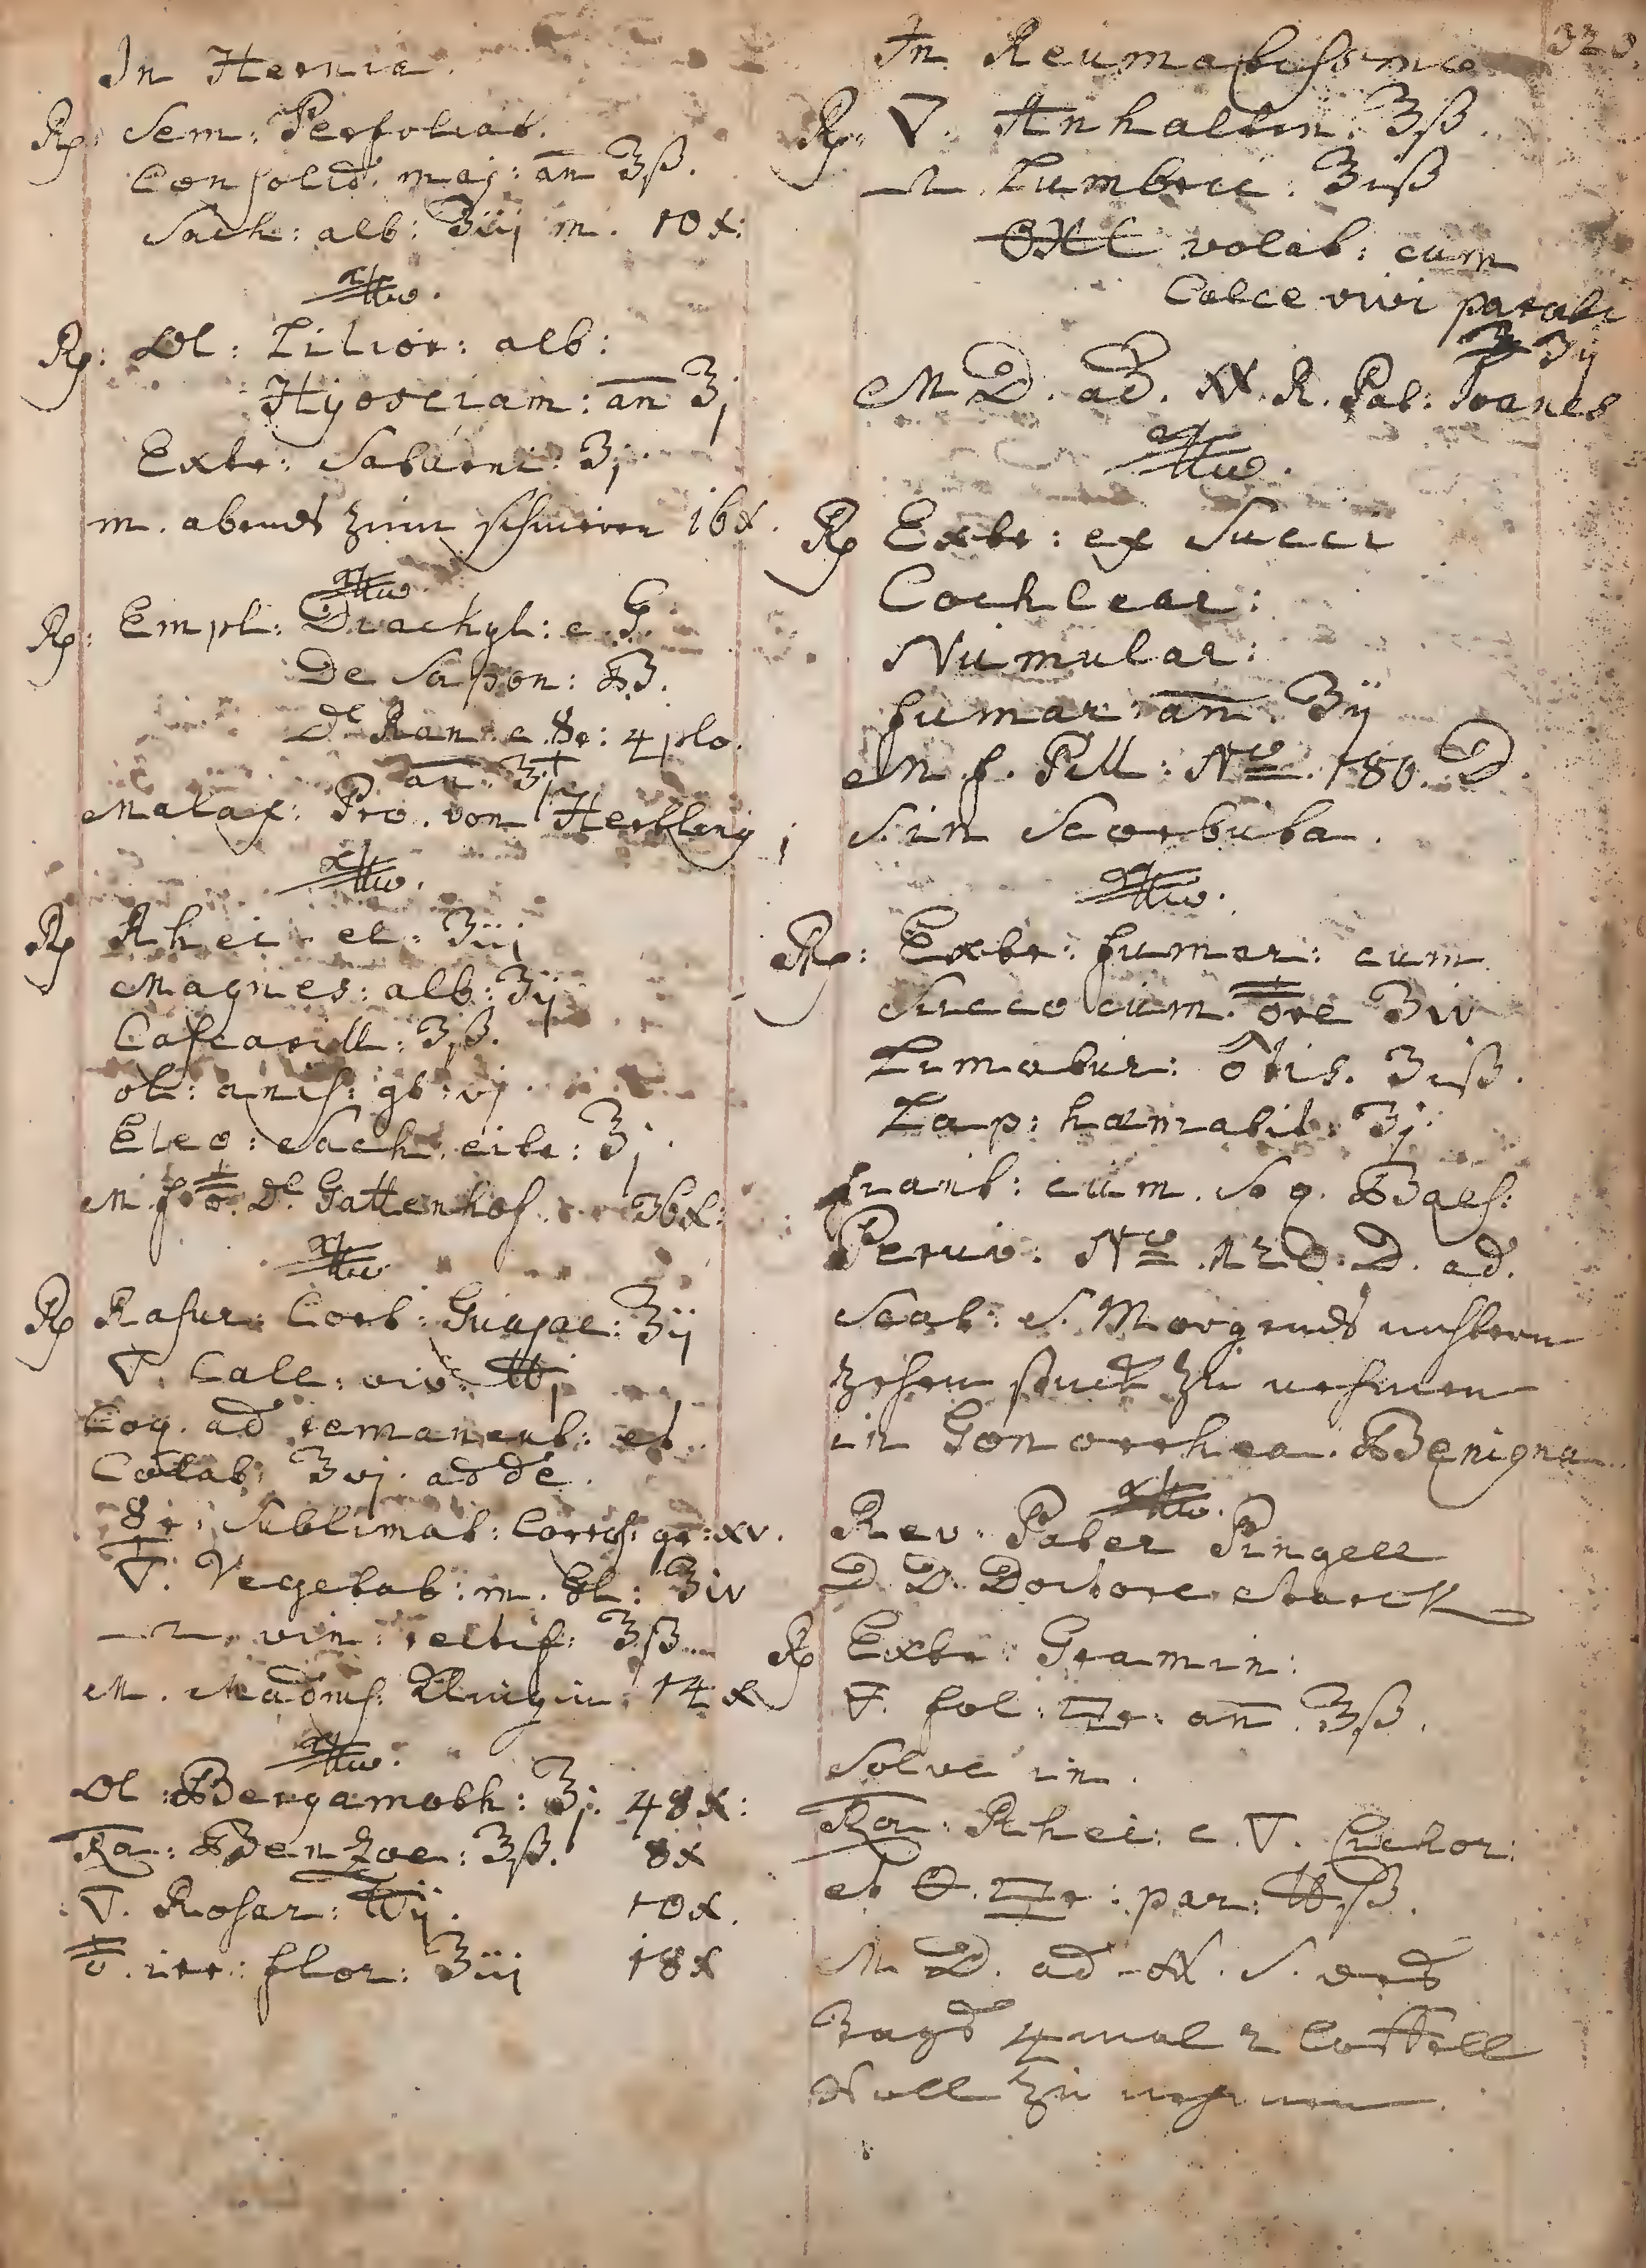 In Hernia.
Rp: Sem: Perfoliat.
Consolid. maj: an ʒß.
Sach: alb: ʒiij m. 10x:
Rp: Ol: Lilior: alb:
Hyosciam: an ʒj
Extr: Saturni: ʒj
m. abends zum schmiren 16x.
Rp: Empl: Diachyl: c. G.
De Sapon: B.
De Ran. c. ☿r: 4plo.
an: ʒj
Malax: Pro. von Hertling
Rp Rhei el: ʒiij
Magnes: alb: ʒij
Cascarill: ʒß.
ol: anis: gt: vj
Eleo: Sach: citr: ʒj
M. f. D. Gattenhof. 36x:
Rp Rasur: Cort: Guajac: ʒij
🜄. Calc: viv: ℔j
Coq. ad remanent: et
Colab: ʒvj. adde.
☿r: Sublimat: Corros: gr: xv.
🜄. Vegetab: m. ʒiv
vin: rectif: ʒß
M. Madms: 14x
Ol: Bergamoth: ʒj. 48x:
Ra: Benzoe: ʒß. 8x
🜄. Rosar: ℔ij. 10x.
irr: flor: ʒiij 18x
320.
In Reumatissmo
Rp. 🜄. Anhaltin: ʒß.
Lumbric: ʒiß
volat: cum
Calce vivi parati
ʒij
M D. ad. R. Pat: Joanes
Rp Extr: ex Succi
Cochlear:
Numular:
fumar an ʒij
M. f. Pill: No. 180. D.
S. in Scorbuta.
Rp: Extr: fumar: cum
Succo cum ʒiv
Limatur: ♂tis. ʒiß.
Lap: hæmatit: ʒj.
fiant: cum. S. q. Bals:
Peruv. No. 120. D. ad.
Scat: S. Morgends nüchtern
zehen stuck zu nehmen
in Gonorrhea. Benigna.
Rev: Pater Pingell
D. D. Doctore Starck
Rp Extr: Gramin:
🜄. fol: an. ʒß.
Solve in.
Ra: Rhei: c. 🜄. Cichor:
et par: ℔ß.
M D. ad. S. des
Tags 4 mal 2 Coffell
Voll zu nehmen.